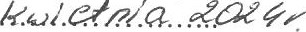 kwietnia 2024r.